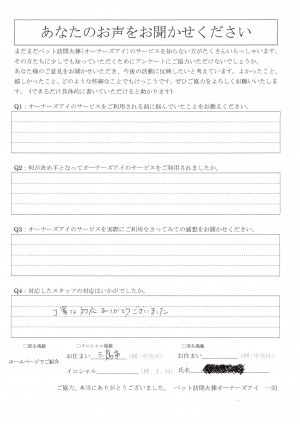 あなたのお声をお聞かせください
まだまだペット訪問火葬(オーナーズアイ)のサービスを知らない方がたくさんいらっしゃいます。
その方たちに少しでも知っていただくためにアンケートにご協力いただけないでしょうか。
あなた様のご意見をお聞かせいただき、今後の活動に反映したいと考えています。よかったこと、
嬉しかったこと、どのような些細なことでもけっこうです。ぜひご協力をよろしくお願いいたしま
す。(できるだけ具体的に書いていただけると助かります)
Q1:オーナーズアイのサービスをご利用される前に悩んでいたことをお教えください。
Q2:何が決め手となってオーナーズアイのサービスをご利用されましたか。
Q3:オーナーズアイのサービスを実際にご利用なさってみての感想をお聞かせください。
Q4:対応したスタッフの対応はいかがでしたか。
丁寧な対応ありがとうございました
□匿名掲載 □イニシャル掲載 □実名掲載
ホームページでご紹介 お住まい (例:中央区) お住まい (例:中央区)
イニシャル (例:J.M) 氏名
ご協力、本当にありがとうございました。 ペット訪問火葬オーナーズアイ 一同